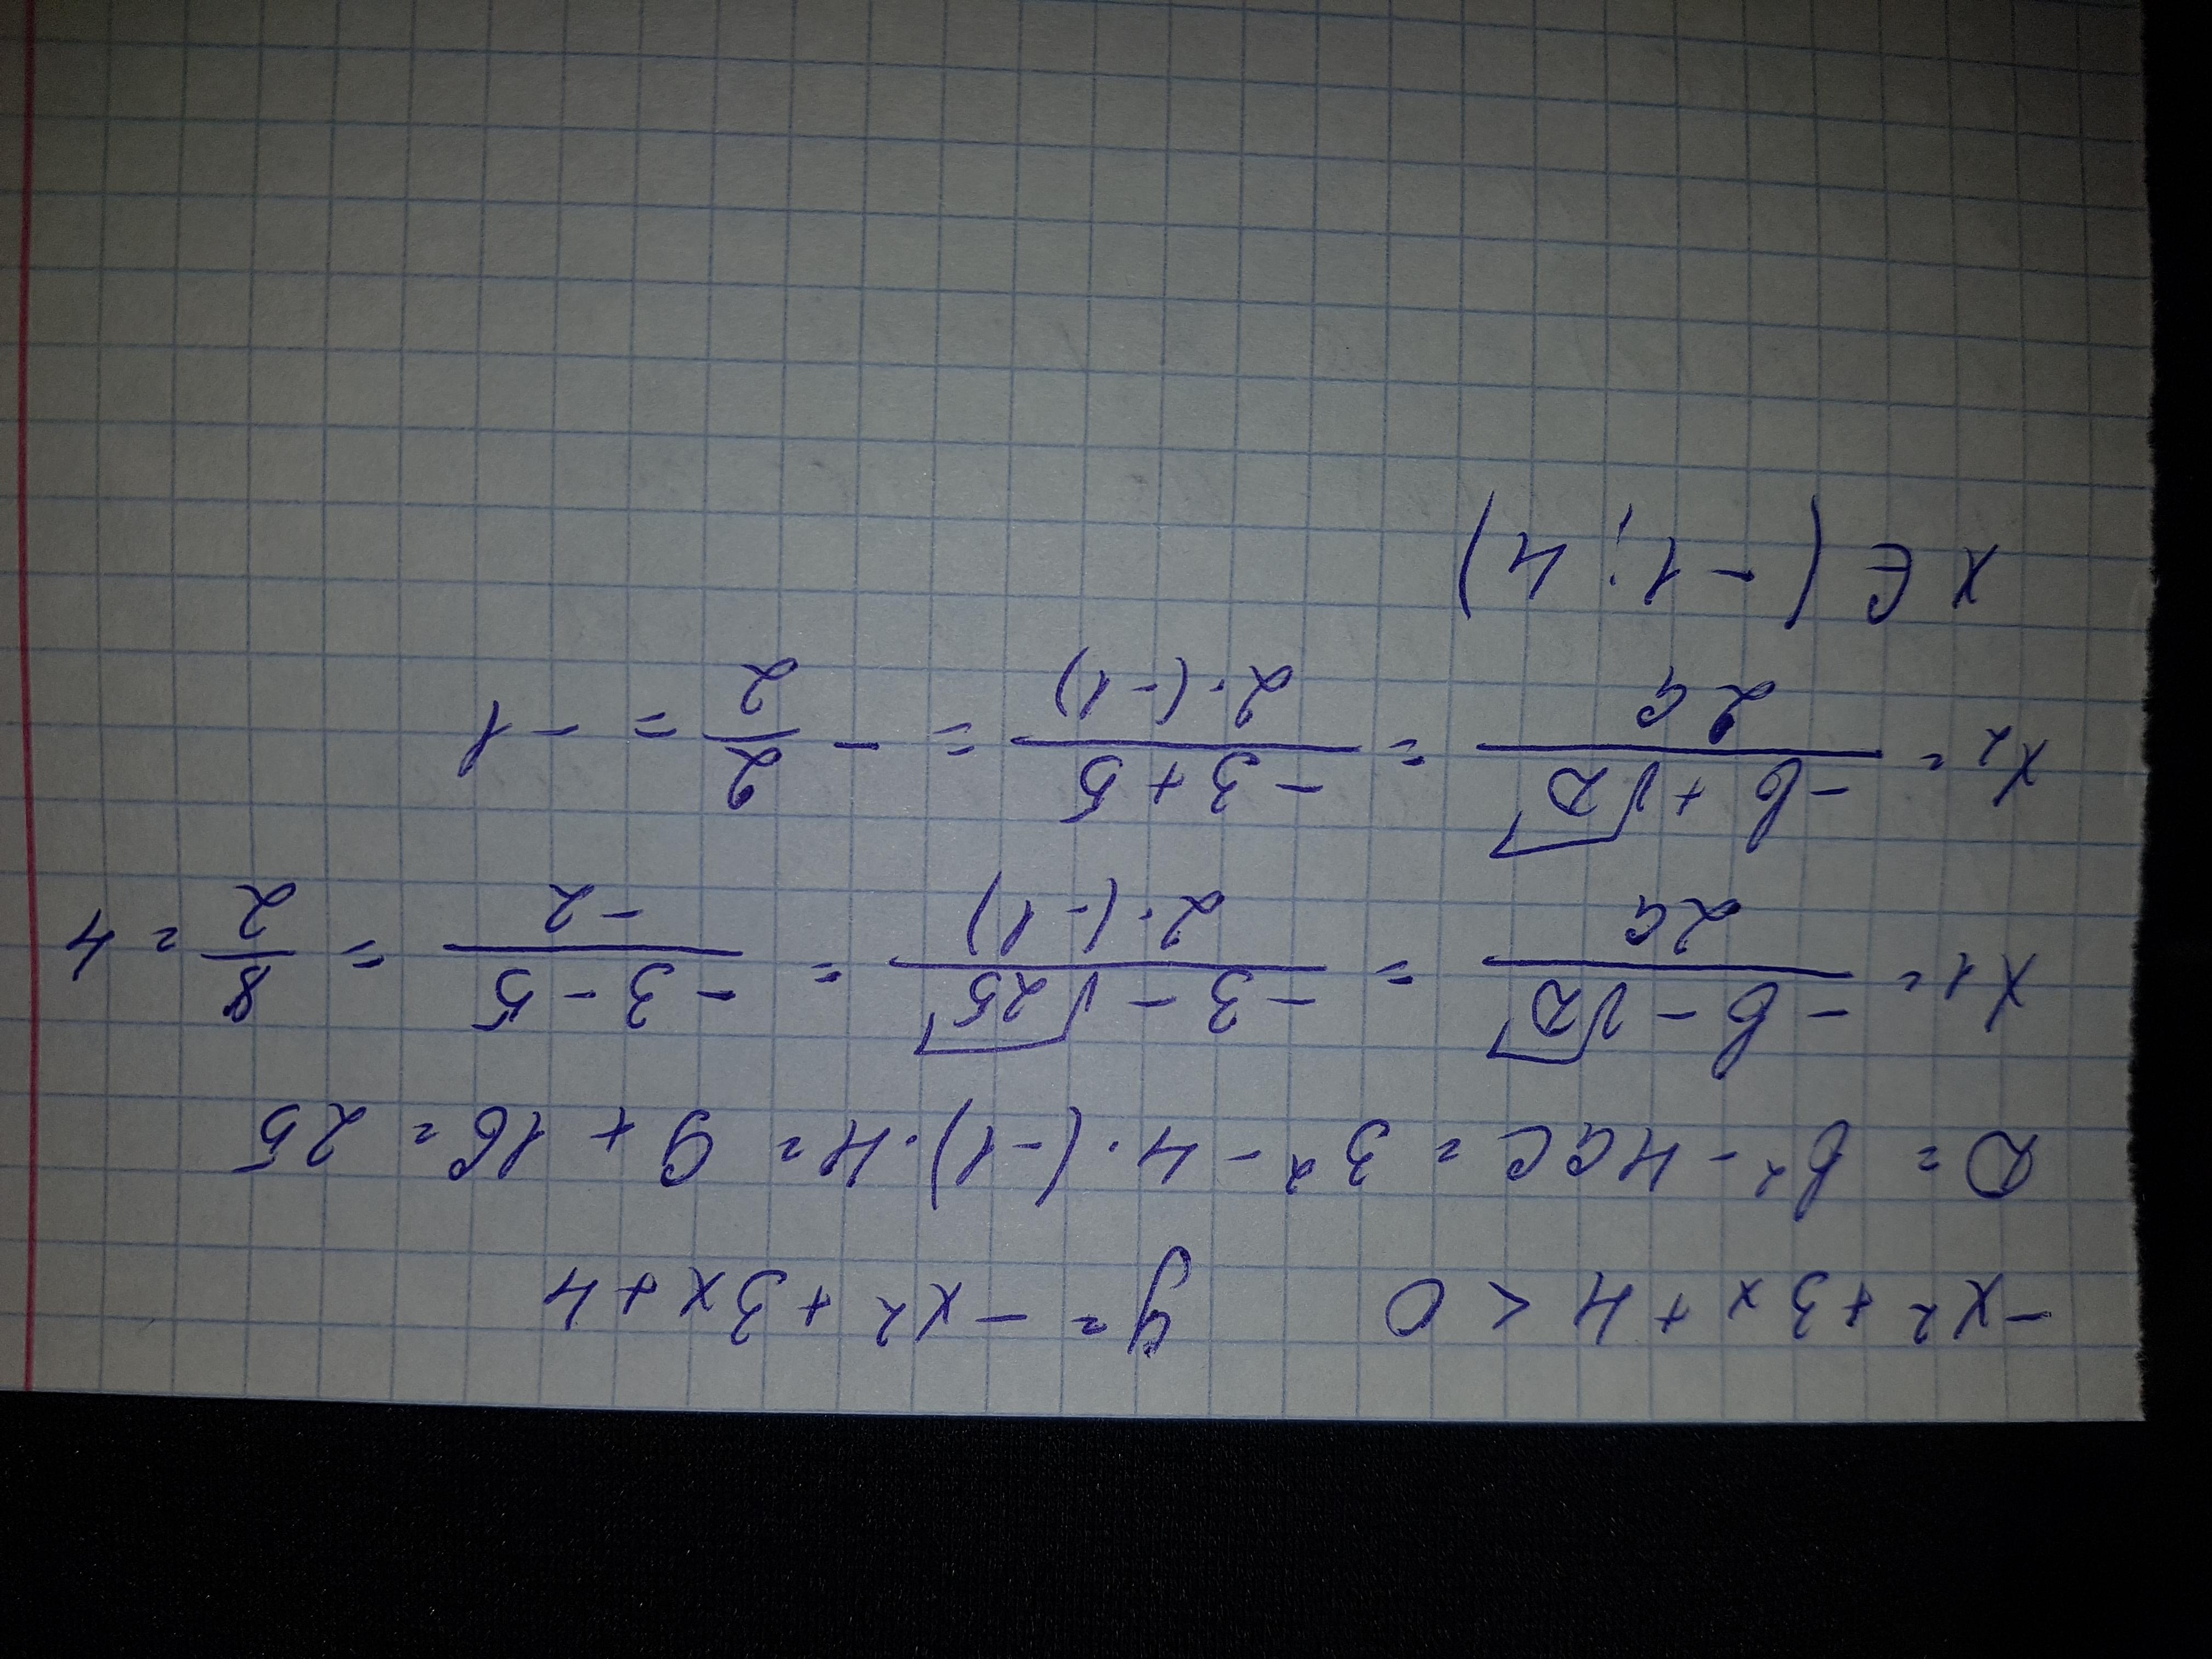 -x² + 3x + 4 > 0 y = -x² + 3x + 4
D = b² - 4ac = 3² - 4·(-1)·4 = 9 + 16 = 25
x₁ = (-b - √D)/(2a) = (-3 - √25)/(2·(-1)) = (-3 - 5)/(-2) = 8/2 = 4
x₂ = (-b + √D)/(2a) = (-3 + 5)/(2·(-1)) = -2/2 = -1
x ∈ (-1; 4)